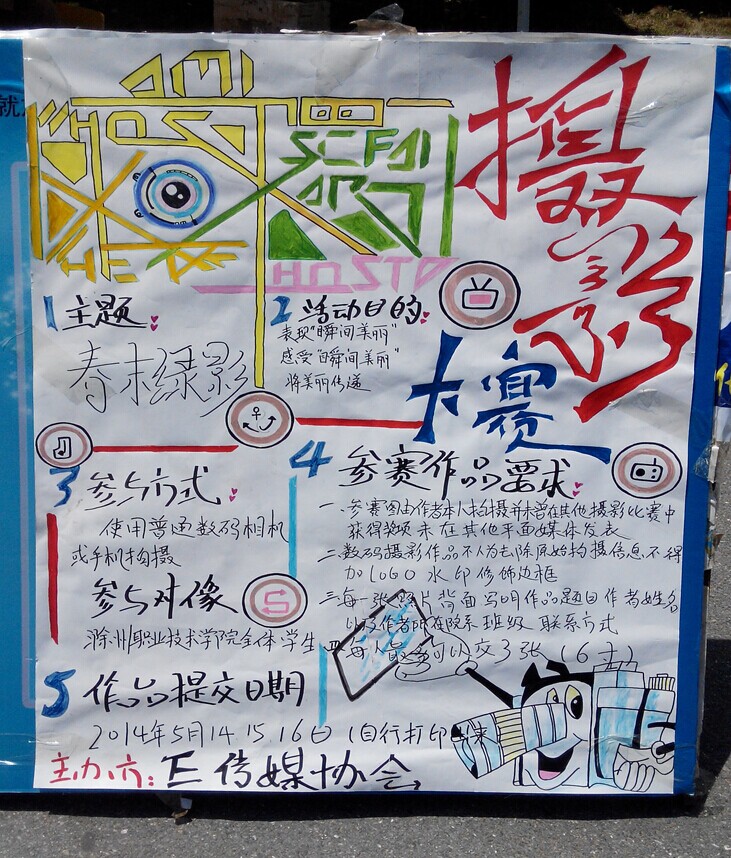 AMI
HOST
SCFAI
ART
THE
HOSTO
摄影
大赛
1 主题
春末绿影
2 活动目的
表现"瞬间美丽"
感受"瞬间美丽"
将美丽传递
3 参与方式
使用普通数码相机
或手机拍摄
参与对像
滁州职业技术学院全体学生
4 参赛作品要求
一、参赛图由作者本人拍摄并未曾在其他摄影比赛中
获得奖项未在其他平面媒体发表
二、数码摄影作品不人为去除原始拍摄信息不得
加LOGO水印修饰边框
三、每一张照片背面写明作品题目作者姓名
以及作者所在院系班级 联系方式
四、每人最多可以交3张(6寸)
5 作品提交日期
2014年5月14.15.16日(自行打印出来
主办方:E传媒协会
就